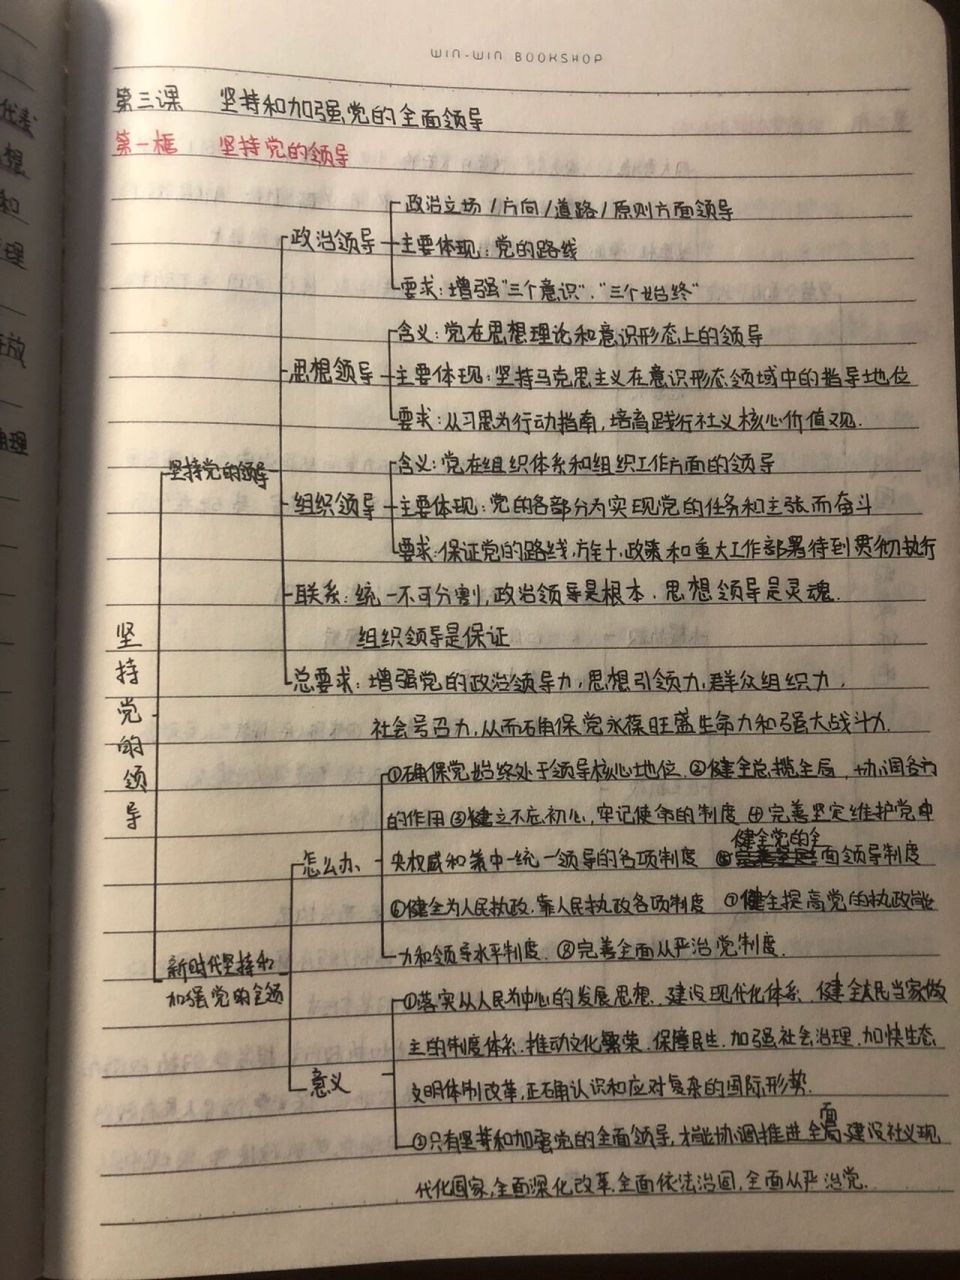 WIN-WIN BOOKSHOP
第三课 坚持和加强党的全面领导
第一框 坚持党的领导
政治立场/方向/道路/原则方面领导
政治领导 主要体现:党的路线
要求:增强"三个意识"."三个始终"
含义:党在思想理论和意识形态上的领导
思想领导 主要体现:坚持马克思主义在意识形态领域中的指导地位
要求:从习思为行动指南,培育践行社义核心价值观.
坚持党的领导 含义:党在组织体系和组织工作方面的领导
组织领导 主要体现:党的各部分为实现党的任务和主张而奋斗
要求:保证党的路线,方针,政策和重大工作部署得到贯彻执行
联系:统一不可分割,政治领导是根本.思想领导是灵魂.
组织领导是保证
总要求:增强党的政治领导力,思想引领力,群众组织力,
社会号召力,从而确保党永葆旺盛生命力和强大战斗力.
坚持党的领导
①确保党始终处于领导核心地位.②健全总揽全局,协调各方
的作用③建立不忘初心,牢记使命的制度④完善坚定维护党中
健全党的全
怎么办 央权威和集中统一领导的各项制度 ⑤面领导制度
⑥健全为人民执政.靠人民执政各项制度 ⑦健全提高党的执政能
力和领导水平制度.⑧完善全面从严治党制度.
新时代坚持和
加强党的全领
①落实从人民为中心的发展思想.建设现代化体系.健全人民当家做
主的制度体系.推动文化繁荣.保障民生.加强社会治理.加快生态
意义 文明体制改革,正确认识和应对复杂的国际形势.
面
②只有坚持和加强党的全面领导,才能协调推进全建设社义现
代化国家,全面深化改革.全面依法治国,全面从严治党.